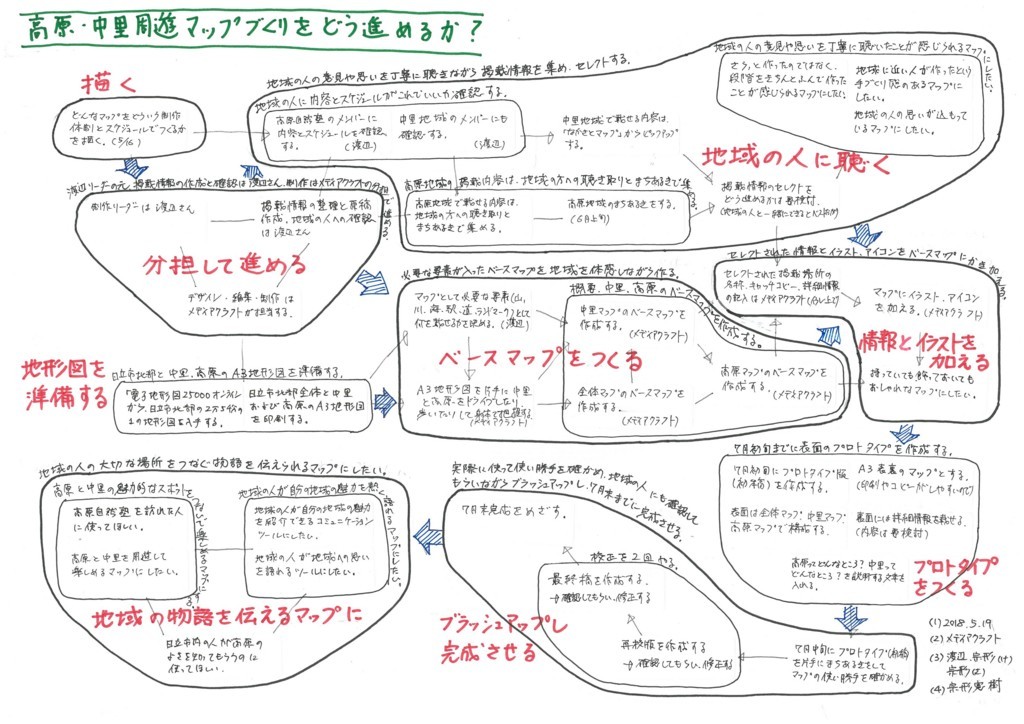 高原・中里周遊マップづくりをどう進めるか？
描く
どんなマップをどういう制作
体制とスケジュールでつくるか
を描く。(5/16)
地域の人の意見や思いを丁寧に聴きながら掲載情報を集め、セレクトする。
地域の人に内容とスケジュールがこれでいいか確認する。
高原自然塾のメンバーに
内容とスケジュールを確認
する。
(渡辺)
中里地域のメンバーにも
確認する。
(渡辺)
中里地域で載せる内容は、
「なかさとマップ」からピックアップ
する。
地域の人の意見や思いを丁寧に聴いたことが感じられるマップにしたい。
さらっと作ったのではなく、
段階をきちんとふんで作った
ことが感じられるマップにしたい。
地域に近い人が作ったという
手づくり感のあるマップに
したい。
地域の人の思いが込もって
いるマップにしたい。
地域の人に聴く
高原地域の掲載内容は、地域の方への聴き取りとまちあるきで集める。
高原地域で載せる内容は、
地域の方への聴き取りと
まちあるきで集める。
高原地域のまちあるきをする。
(6月上旬)
掲載情報のセレクトを
どう進めるかは要検討。
(地域の人と一緒にできるとベスト)
渡辺リーダーの元、掲載情報の作成と確認は渡辺さん、制作はメディアクラフトの分担で進める。
制作リーダーは渡辺さん
掲載情報の整理と原稿
作成、地域の人への確認
は渡辺さん
分担して進める
デザイン・編集・制作は
メディアクラフトが担当する。
地形図を
準備する
日立市北部と中里、高原のA3地形図を準備する。
「電子地形図25000オンライン」
から、日立市北部の2万5千分の
1の地形図を入手する。
日立市北部全体と中里
および高原のA3地形図
を印刷する。
必要な要素が入ったベースマップを地域を体感しながら作る。
マップとして必要な要素(山、
川、海、駅、道、ランドマーク)として
何を載せるかを決める。(渡辺)
ベースマップをつくる
A3地形図を片手に中里
と高原をドライブしたり、
歩いたりして身体で把握する。
(メディアクラフト)
概要、中里、高原のベースマップを作成する。
中里マップのベースマップを
作成する。
(メディアクラフト)
全体マップのベースマップを
作成する。
(メディアクラフト)
高原マップのベースマップを
作成する。
(メディアクラフト)
セレクトされた情報とイラスト、アイコンをベースマップにかき加える。
セレクトされた掲載場所の
名称、キャッチコピー、詳細情報
の記入はメディアクラフト(6月上旬)
マップにイラスト、アイコン
を加える。
(メディアクラフト)
情報とイラストを
加える
持っていても飾っておいても
おしゃれなマップにしたい。
7月初旬までに表面のプロトタイプを作成する。
7月初旬にプロトタイプ版
(初稿)を作成する。
A3表裏のマップとする。
(印刷やコピーがしやすいので)
表面は全体マップ、中里マップ、
高原マップで構成する。
裏面には詳細情報を載せる。
(内容は要検討)
高原ってどんなところ？中里って
どんなところ？を説明する文章を
入れる。
プロトタイプ
をつくる
地域の人の大切な場所をつなぐ物語を伝えられるマップにしたい。
高原と中里の魅力的なスポットをつないで楽しめるマップにする。
高原自然塾を訪れた人
に使ってほしい。
高原と中里を周遊して
楽しめるマップにしたい。
地域の人が自分の地域の魅力を熱く語れるマップにしたい。
地域の人が自分の地域の魅力
を紹介できるコミュニケーション
ツールにしたい。
地域の人が地域への思い
を語れるツールにしたい。
地域の物語を伝えるマップに
日立市内の人が高原の
よさを知ってもらうのに
使ってほしい。
実際に使って使い勝手を確かめ、地域の人にも確認して
もらいながらブラッシュアップし、7月末までに完成させる。
7月末完成をめざす。
校正を2回やる。
最終稿を作成する。
→確認してもらい、修正する
再校版を作成する
→確認してもらい、修正する
ブラッシュアップし
完成させる
7月中旬にプロトタイプ(初稿)
を片手にまちあるきをして
マップの使い勝手を確かめる。
(1) 2018.5.19
(2) メディアクラフト
(3) 渡辺、宗形(け)
宗形(え)
(4) 宗形憲樹